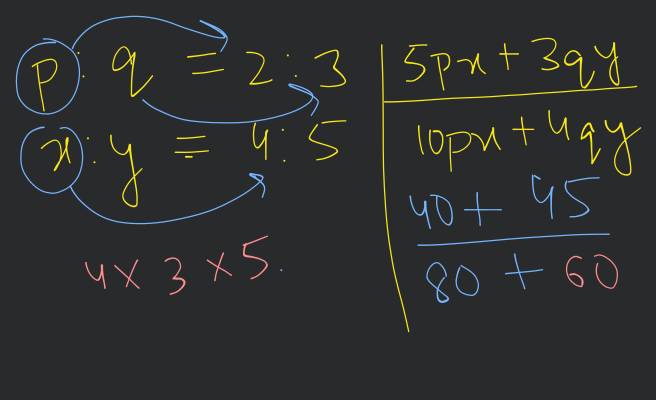 p : q = 2 : 3
x : y = 4 : 5
4 × 3 × 5.
5px + 3qy
10px + 4qy
40 + 45
80 + 60